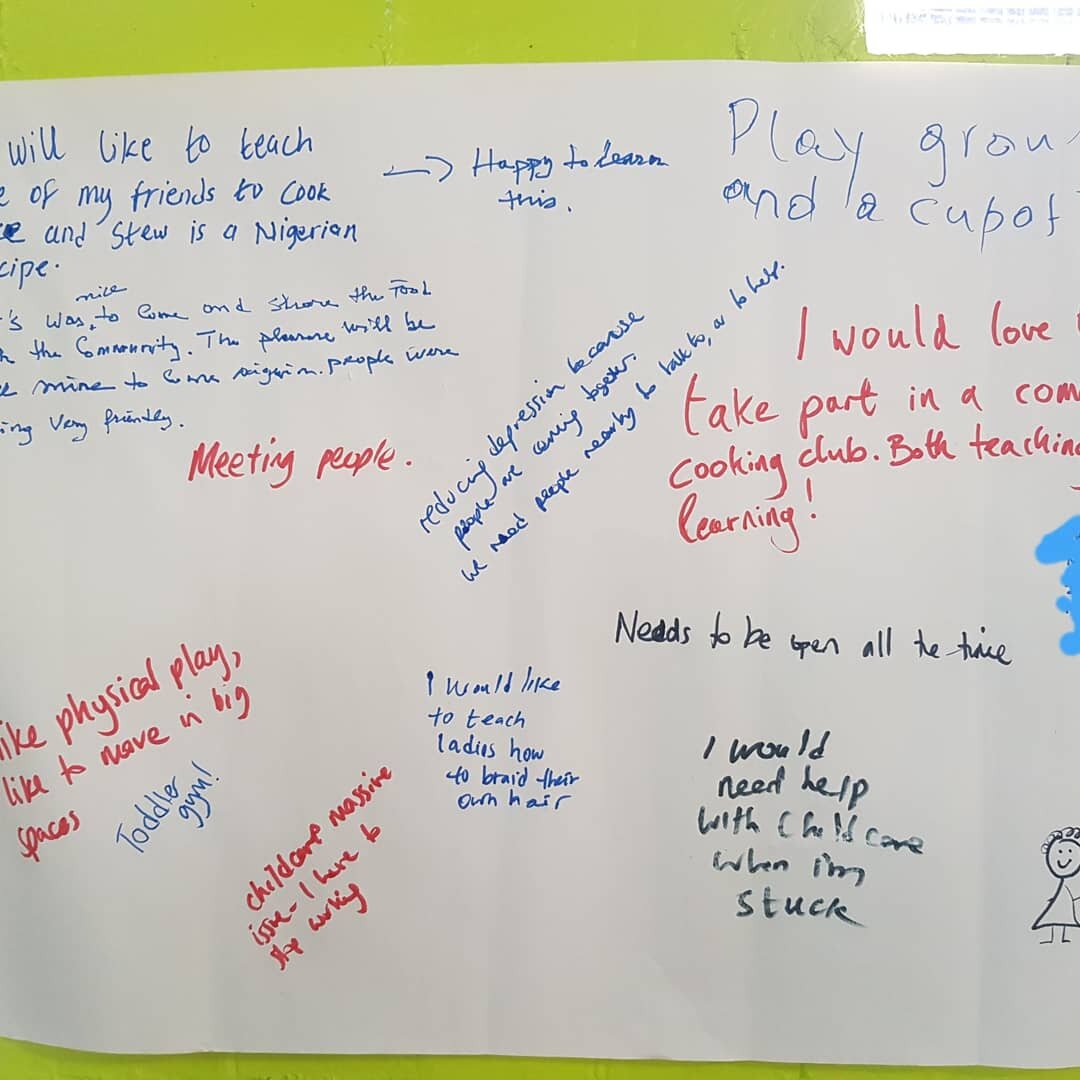 will like to teach
e of my friends to cook
e and Stew is a Nigerian
cipe.
→ Happy to learn
this.
Play grou
and a cupof
's was nice to come and share the Food
the Community. The pleasure will be
mine to come nigerian. people were
ing very friendly.
Meeting people.
reducing depression because
people are coming together.
we need people nearby to talk to, or to help.
I would love
take part in a com
cooking club. Both teaching
learning!
Needs to be open all the time
ike physical play,
like to move in big
spaces
Toddler
gym!
childcare massive
issue - I have to
stop working
I would like
to teach
ladies how
to braid their
own hair
I would
need help
with Childcare
when i'm
stuck